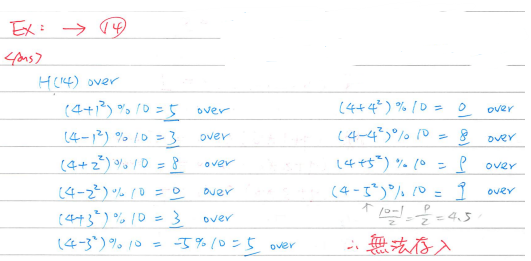 Ex: → 14
<Ans>
H(14) over
(4+1²)%10 = 5 over
(4-1²)%10 = 3 over
(4+2²)%10 = 8 over
(4-2²)%10 = 0 over
(4+3²)%10 = 3 over
(4-3²)%10 = -5%10 = 5 over
(4+4²)%10 = 0 over
(4-4²)%10 = 8 over
(4+5²)%10 = 9 over
(4-5²)%10 = 9 over
↑ (10-1)/2 = 9/2 = 4.5
∴ 無法存入